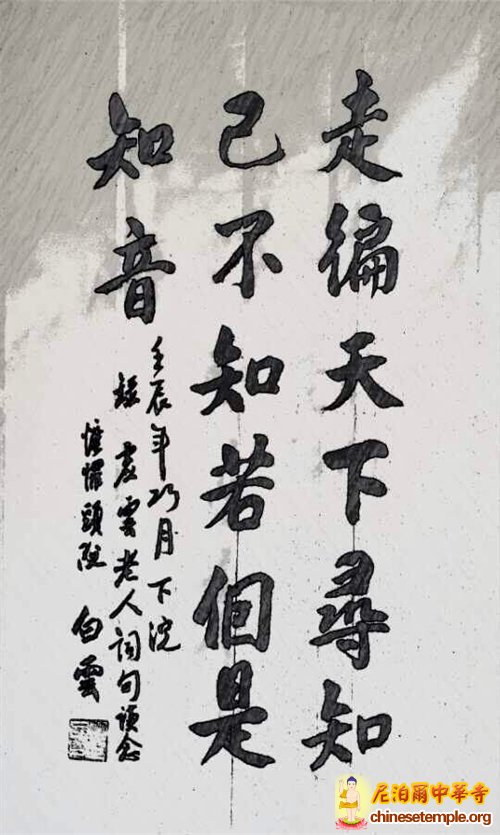 走徧天下尋知
己不知若個是
知音
壬辰年巧月下浣
虛雲老人詞句念
慵懶頭陀 白雲
尼泊爾中華寺
chinesetemple.org